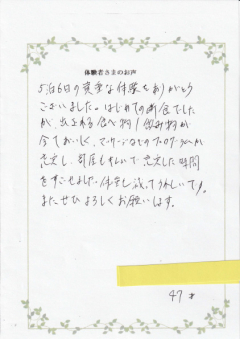 体験者さまのお声
5泊6日の貴重な体験をありがとう
ございました。はじめての断食でした
が、出される食べ物/飲み物が
全ておいしく、マッサージなどのプログラムが
充実し、部屋もキレイで充実した時間
をすごせました。体重も減ってうれしいです。
またぜひよろしくお願いします。
47才